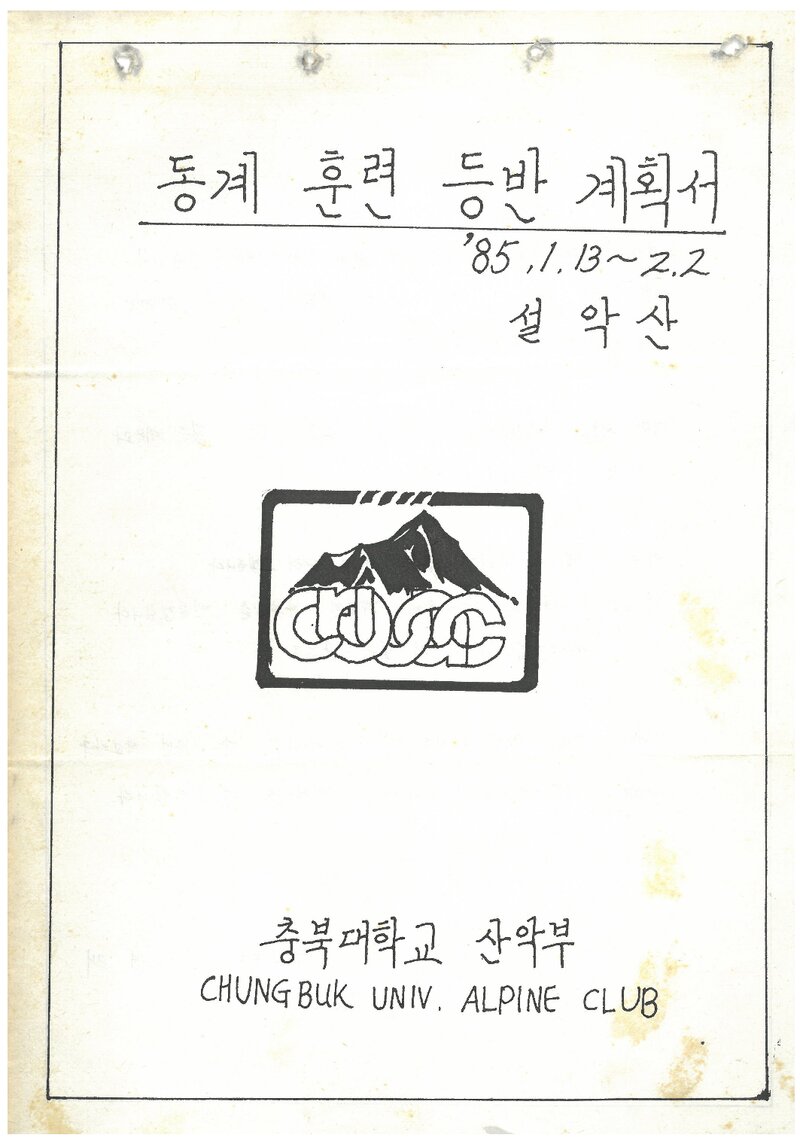 동계 훈련 등반 계획서
'85.1.13~2.2
설악산
CUAC
충북대학교 산악부
CHUNGBUK UNIV. ALPINE CLUB